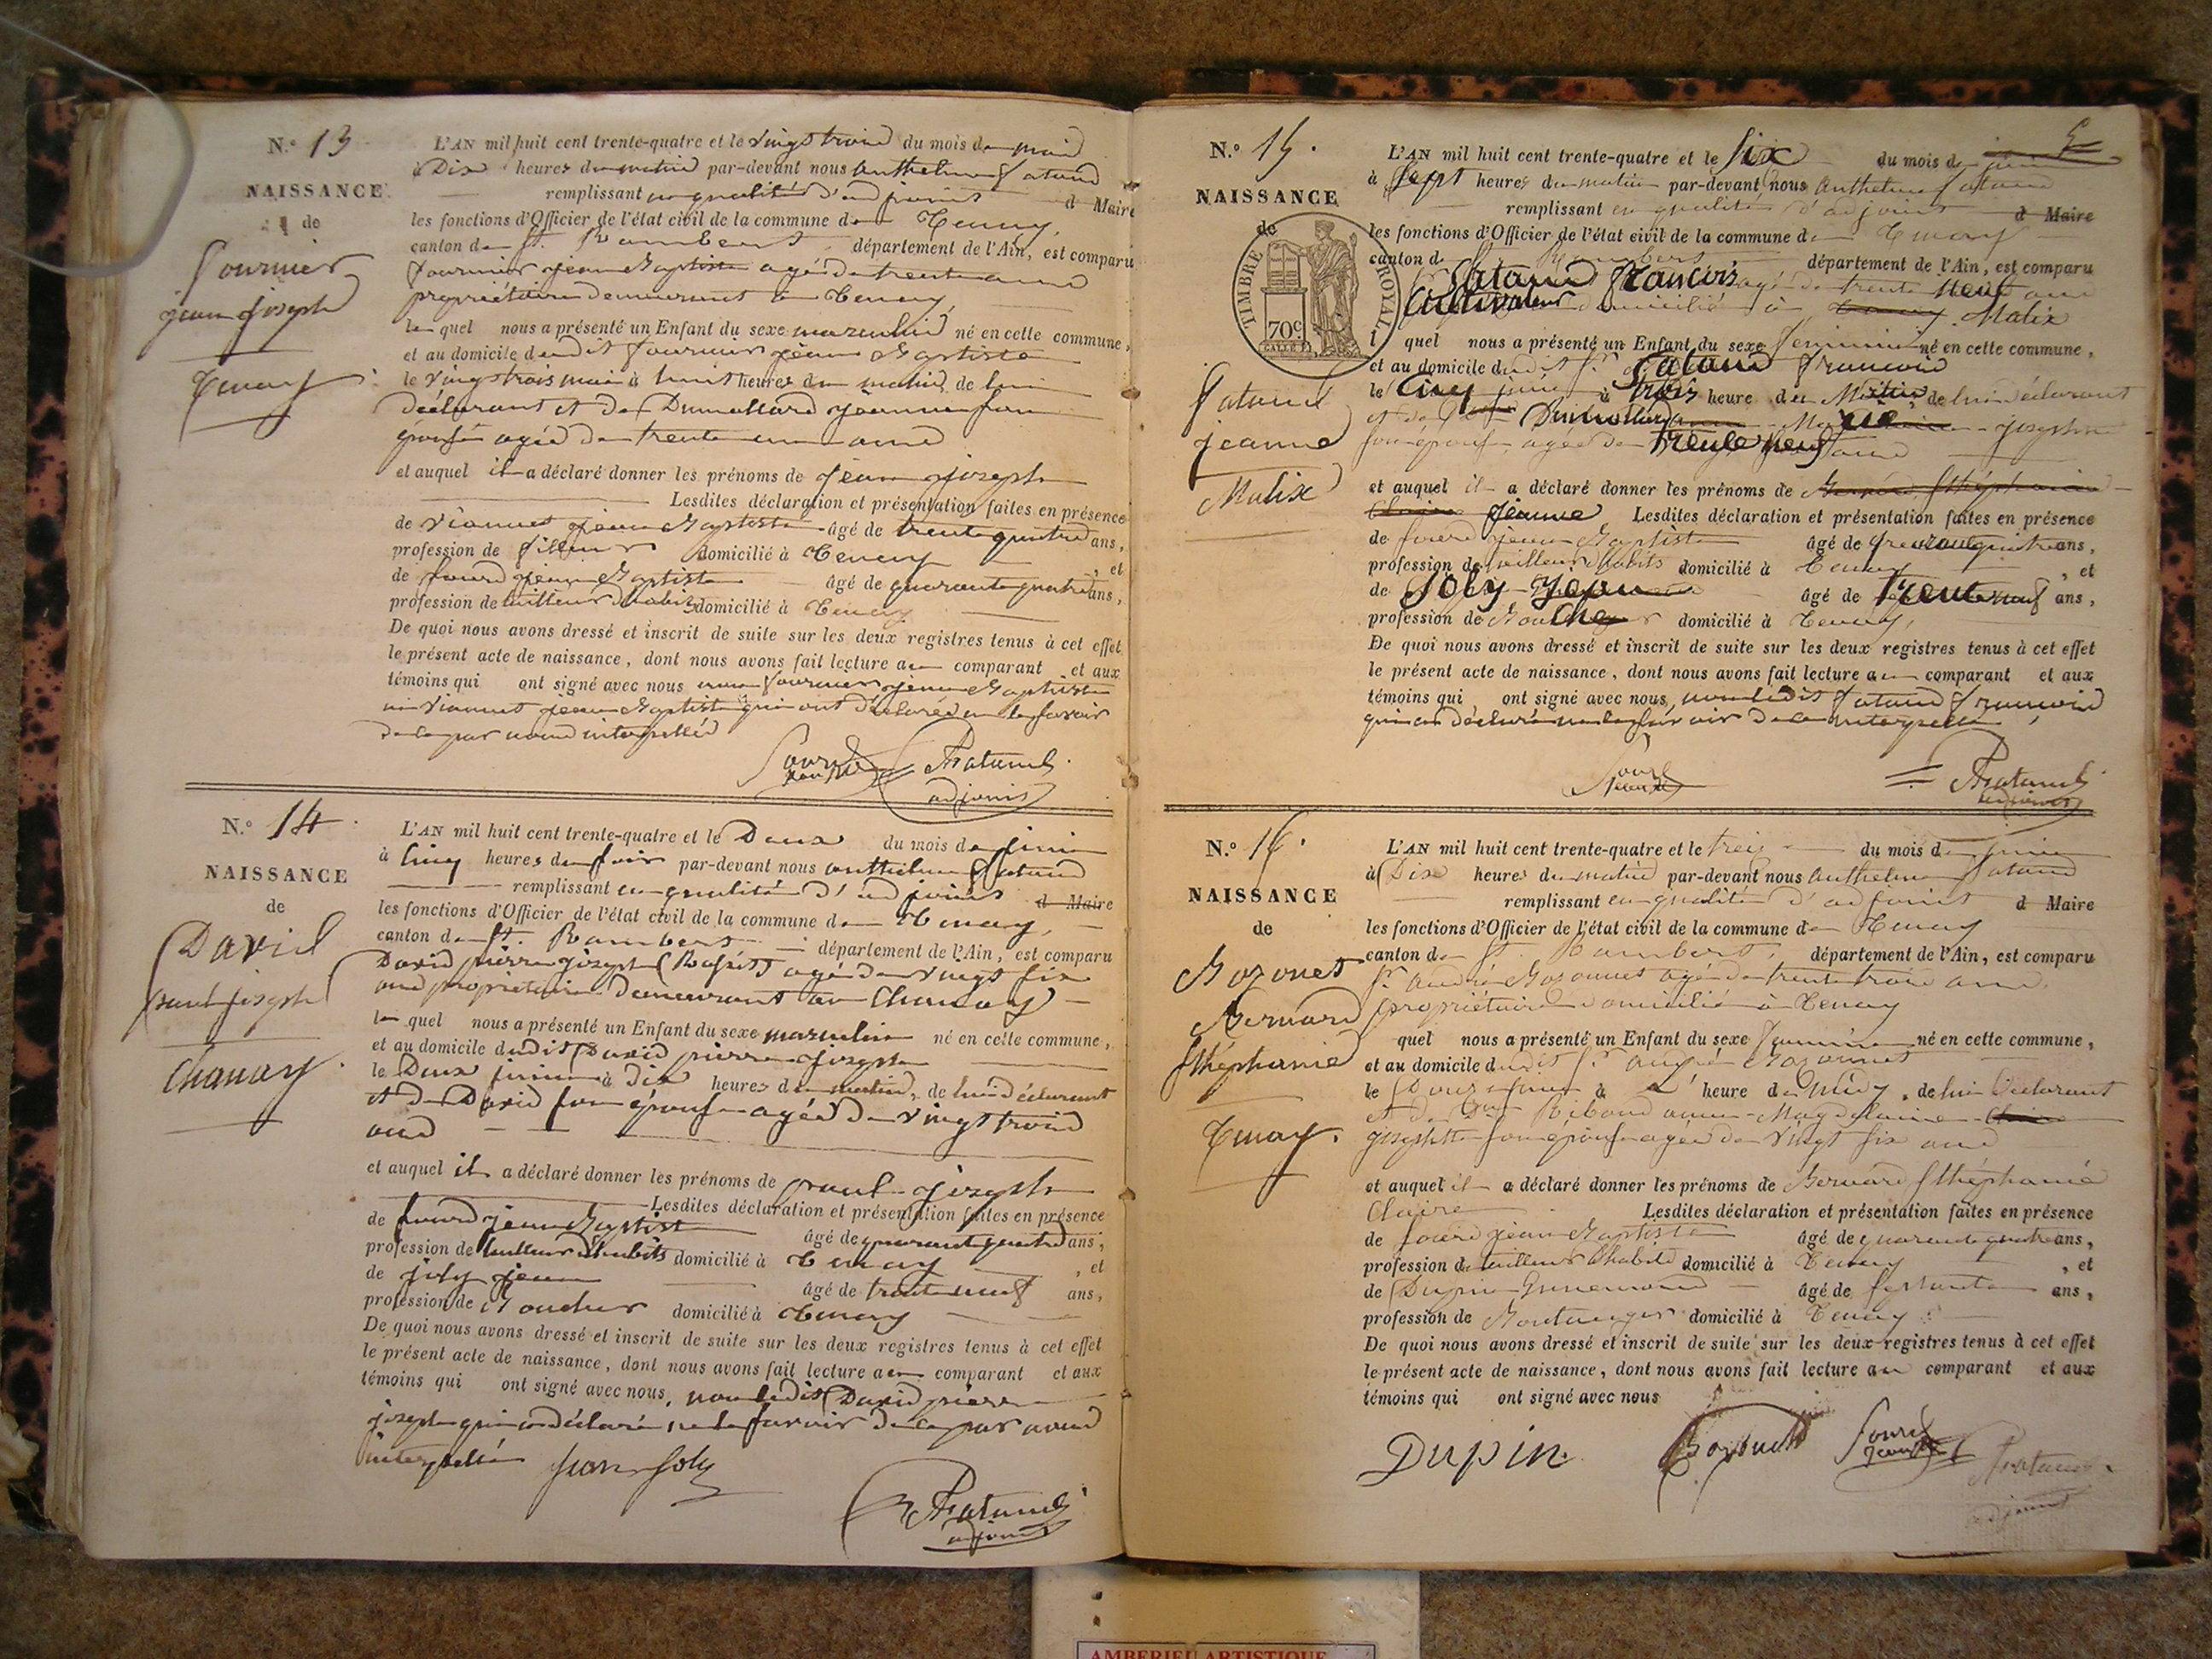 N.° 13
NAISSANCE
de
Fournier
jean joseph
Tenay
L'AN mil huit cent trente-quatre et le vingt trois du mois de mai
à Dix heures du matin par-devant nous anthelme fatand
remplissant en qualité d'adjoint d Maire
les fonctions d'Officier de l'état civil de la commune de Tenay,
canton de St. Rambert département de l'Ain, est comparu
fournier jean Baptiste agé de trente ans
propriétaire demeurant à Tenay
le quel nous a présenté un Enfant du sexe masculin né en cette commune,
et au domicile dudit fournier jean Baptiste
le vingt trois mai à huit heures du matin, de lui
déclarant et de Dumollard jeanne son
épouse agée de trente un ans
et auquel il a déclaré donner les prénoms de jean joseph
Lesdites déclaration et présentation faites en présence
de jean Baptiste âgé de trente quatre ans,
profession de domicilié à Tenay, et
de jean Baptiste âgé de quarante quatre ans,
profession de tailleur d'habits domicilié à Tenay
De quoi nous avons dressé et inscrit de suite sur les deux registres tenus à cet effet
le présent acte de naissance, dont nous avons fait lecture au comparant et aux
témoins qui ont signé avec nous non fournier jean Baptiste
ni jean Baptiste qui ont déclaré ne le savoir
de ce par nous interpellés
adjoint
N.° 14
NAISSANCE
de
David
paul joseph
Chanay
L'AN mil huit cent trente-quatre et le Deux du mois de juin
à cinq heures du soir par-devant nous anthelme fatand
remplissant en qualité d'adjoint d Maire
les fonctions d'Officier de l'état civil de la commune de Tenay,
canton de St. Rambert département de l'Ain, est comparu
David pierre joseph agé de vingt six
ans propriétaire demeurant à Chanay
le quel nous a présenté un Enfant du sexe masculin né en cette commune,
et au domicile dudit David pierre joseph
le Deux juin à dix heures du matin, de lui déclarant
et de David son épouse agée de vingt trois
ans
et auquel il a déclaré donner les prénoms de paul joseph
Lesdites déclaration et présentation faites en présence
de jean Baptiste âgé de quarante quatre ans,
profession de tailleur d'habits domicilié à Tenay, et
de joly jean âgé de trente neuf ans,
profession de Boucher domicilié à Tenay
De quoi nous avons dressé et inscrit de suite sur les deux registres tenus à cet effet
le présent acte de naissance, dont nous avons fait lecture au comparant et aux
témoins qui ont signé avec nous, non ledit David pierre
joseph qui a déclaré ne le savoir de ce par nous
interpellé jean joly
adjoint
N.° 15.
NAISSANCE
de
TIMBRE ROYAL
70c
fatand
jeanne
Malix
L'AN mil huit cent trente-quatre et le six du mois de juin
à sept heures du matin par-devant nous anthelme fatand
remplissant en qualité d'adjoint d Maire
les fonctions d'Officier de l'état civil de la commune de Tenay
canton de St. Rambert département de l'Ain, est comparu
fatand francois agé de trente neuf ans
Cultivateur domicilié à Tenay Malix
l quel nous a présenté un Enfant du sexe feminin né en cette commune,
et au domicile dudit Sr. fatand francois
le Cinq juin à trois heure du Matin de lui déclarant
et de Dumollard Marie josephte
son épouse agée de trente neuf ans
et auquel il a déclaré donner les prénoms de
Claire jeanne Lesdites déclaration et présentation faites en présence
de jean Baptiste âgé de quarante quatre ans,
profession de tailleur d'habits domicilié à Tenay, et
de Joly Jean âgé de trente neuf ans,
profession de Boucher domicilié à Tenay,
De quoi nous avons dressé et inscrit de suite sur les deux registres tenus à cet effet
le présent acte de naissance, dont nous avons fait lecture au comparant et aux
témoins qui ont signé avec nous, non ledit fatand francois
qui a déclaré ne le savoir de ce interpellé
adjoint
N.° 16.
NAISSANCE
de
Bozonet
Bernard
sthéphanie
Tenay.
L'AN mil huit cent trente-quatre et le treize du mois de juin
à Dix heures du matin par-devant nous anthelme fatand
remplissant en qualité d'adjoint d Maire
les fonctions d'Officier de l'état civil de la commune de Tenay
canton de St. Rambert, département de l'Ain, est comparu
Sr. andré Bozonnet agé de trente trois ans,
propriétaire domicilié à Tenay
quel nous a présenté un Enfant du sexe né en cette commune,
et au domicile dudit Sr. andré Bozonnet
le Douze juin à heure de midy, de lui Déclarant
et de Ribaud anne Magdelaine Claire
josephte son épouse agée de vingt six ans
et auquel il a déclaré donner les prénoms de Bernard sthéphanie
Claire Lesdites déclaration et présentation faites en présence
de jean Baptiste âgé de quarante quatre ans,
profession de tailleur d'habits domicilié à Tenay, et
de Dupin âgé de soixante ans,
profession de Boulanger domicilié à Tenay
De quoi nous avons dressé et inscrit de suite sur les deux registres tenus à cet effet
le présent acte de naissance, dont nous avons fait lecture au comparant et aux
témoins qui ont signé avec nous
Dupin
adjoint
AMBERIEU ARTISTIQUE